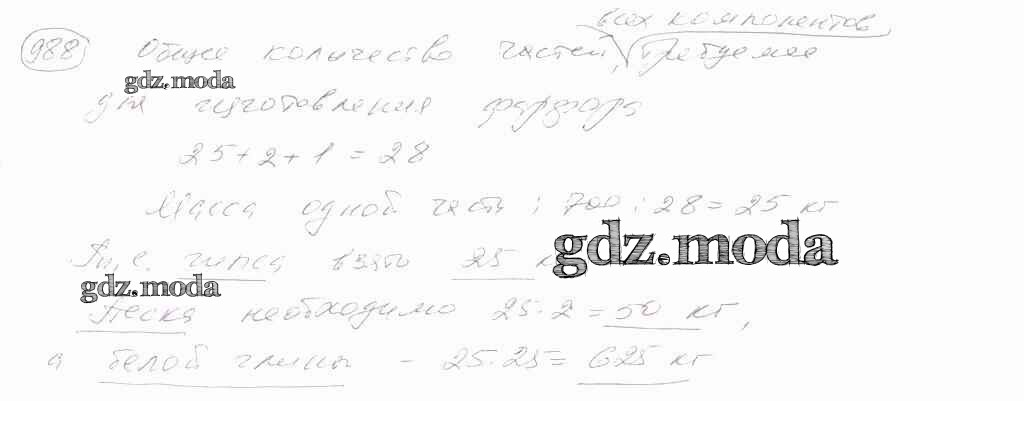 всех компонентов
988 Общее количество частей, требуемое
gdz.moda
для изготовления фарфора
25 + 2 + 1 = 28
Масса одной части: 700 : 28 = 25 кг
gdz.moda
Т.е. гипса взято 25 к
gdz.moda
Песка необходимо 25 · 2 = 50 кг,
а белой глины - 25 · 25 = 625 кг